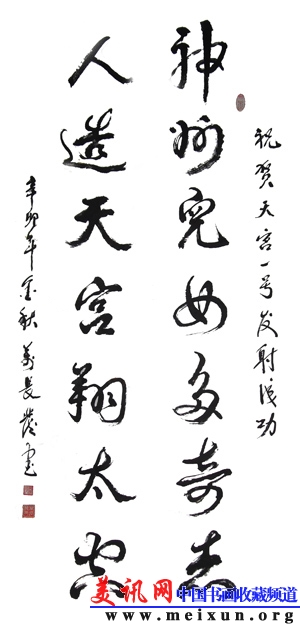 祝贺天宫一号发射成功
神州兒女多奇志
人造天宫翔太空
辛卯年金秋萬長
美讯网 中国书画收藏频道
www.meixun.org